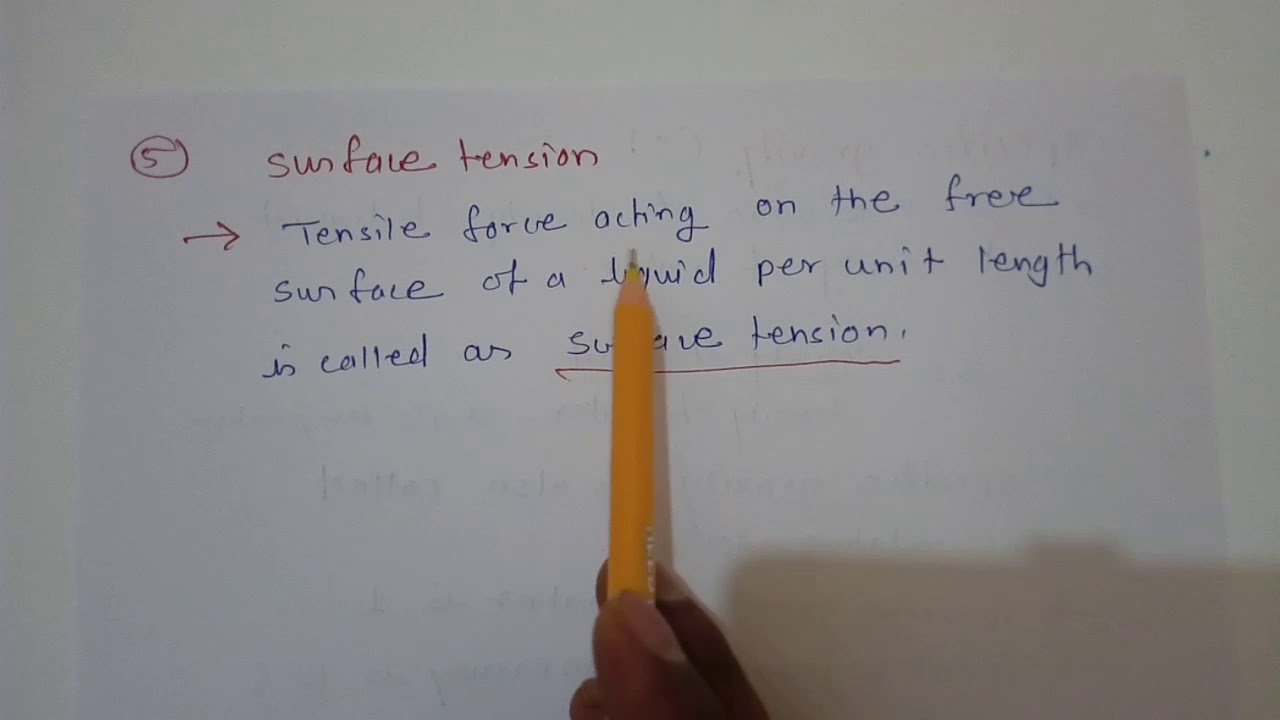 5 surface tension
→ Tensile force acting on the free
surface of a liquid per unit length
is called as surface tension.